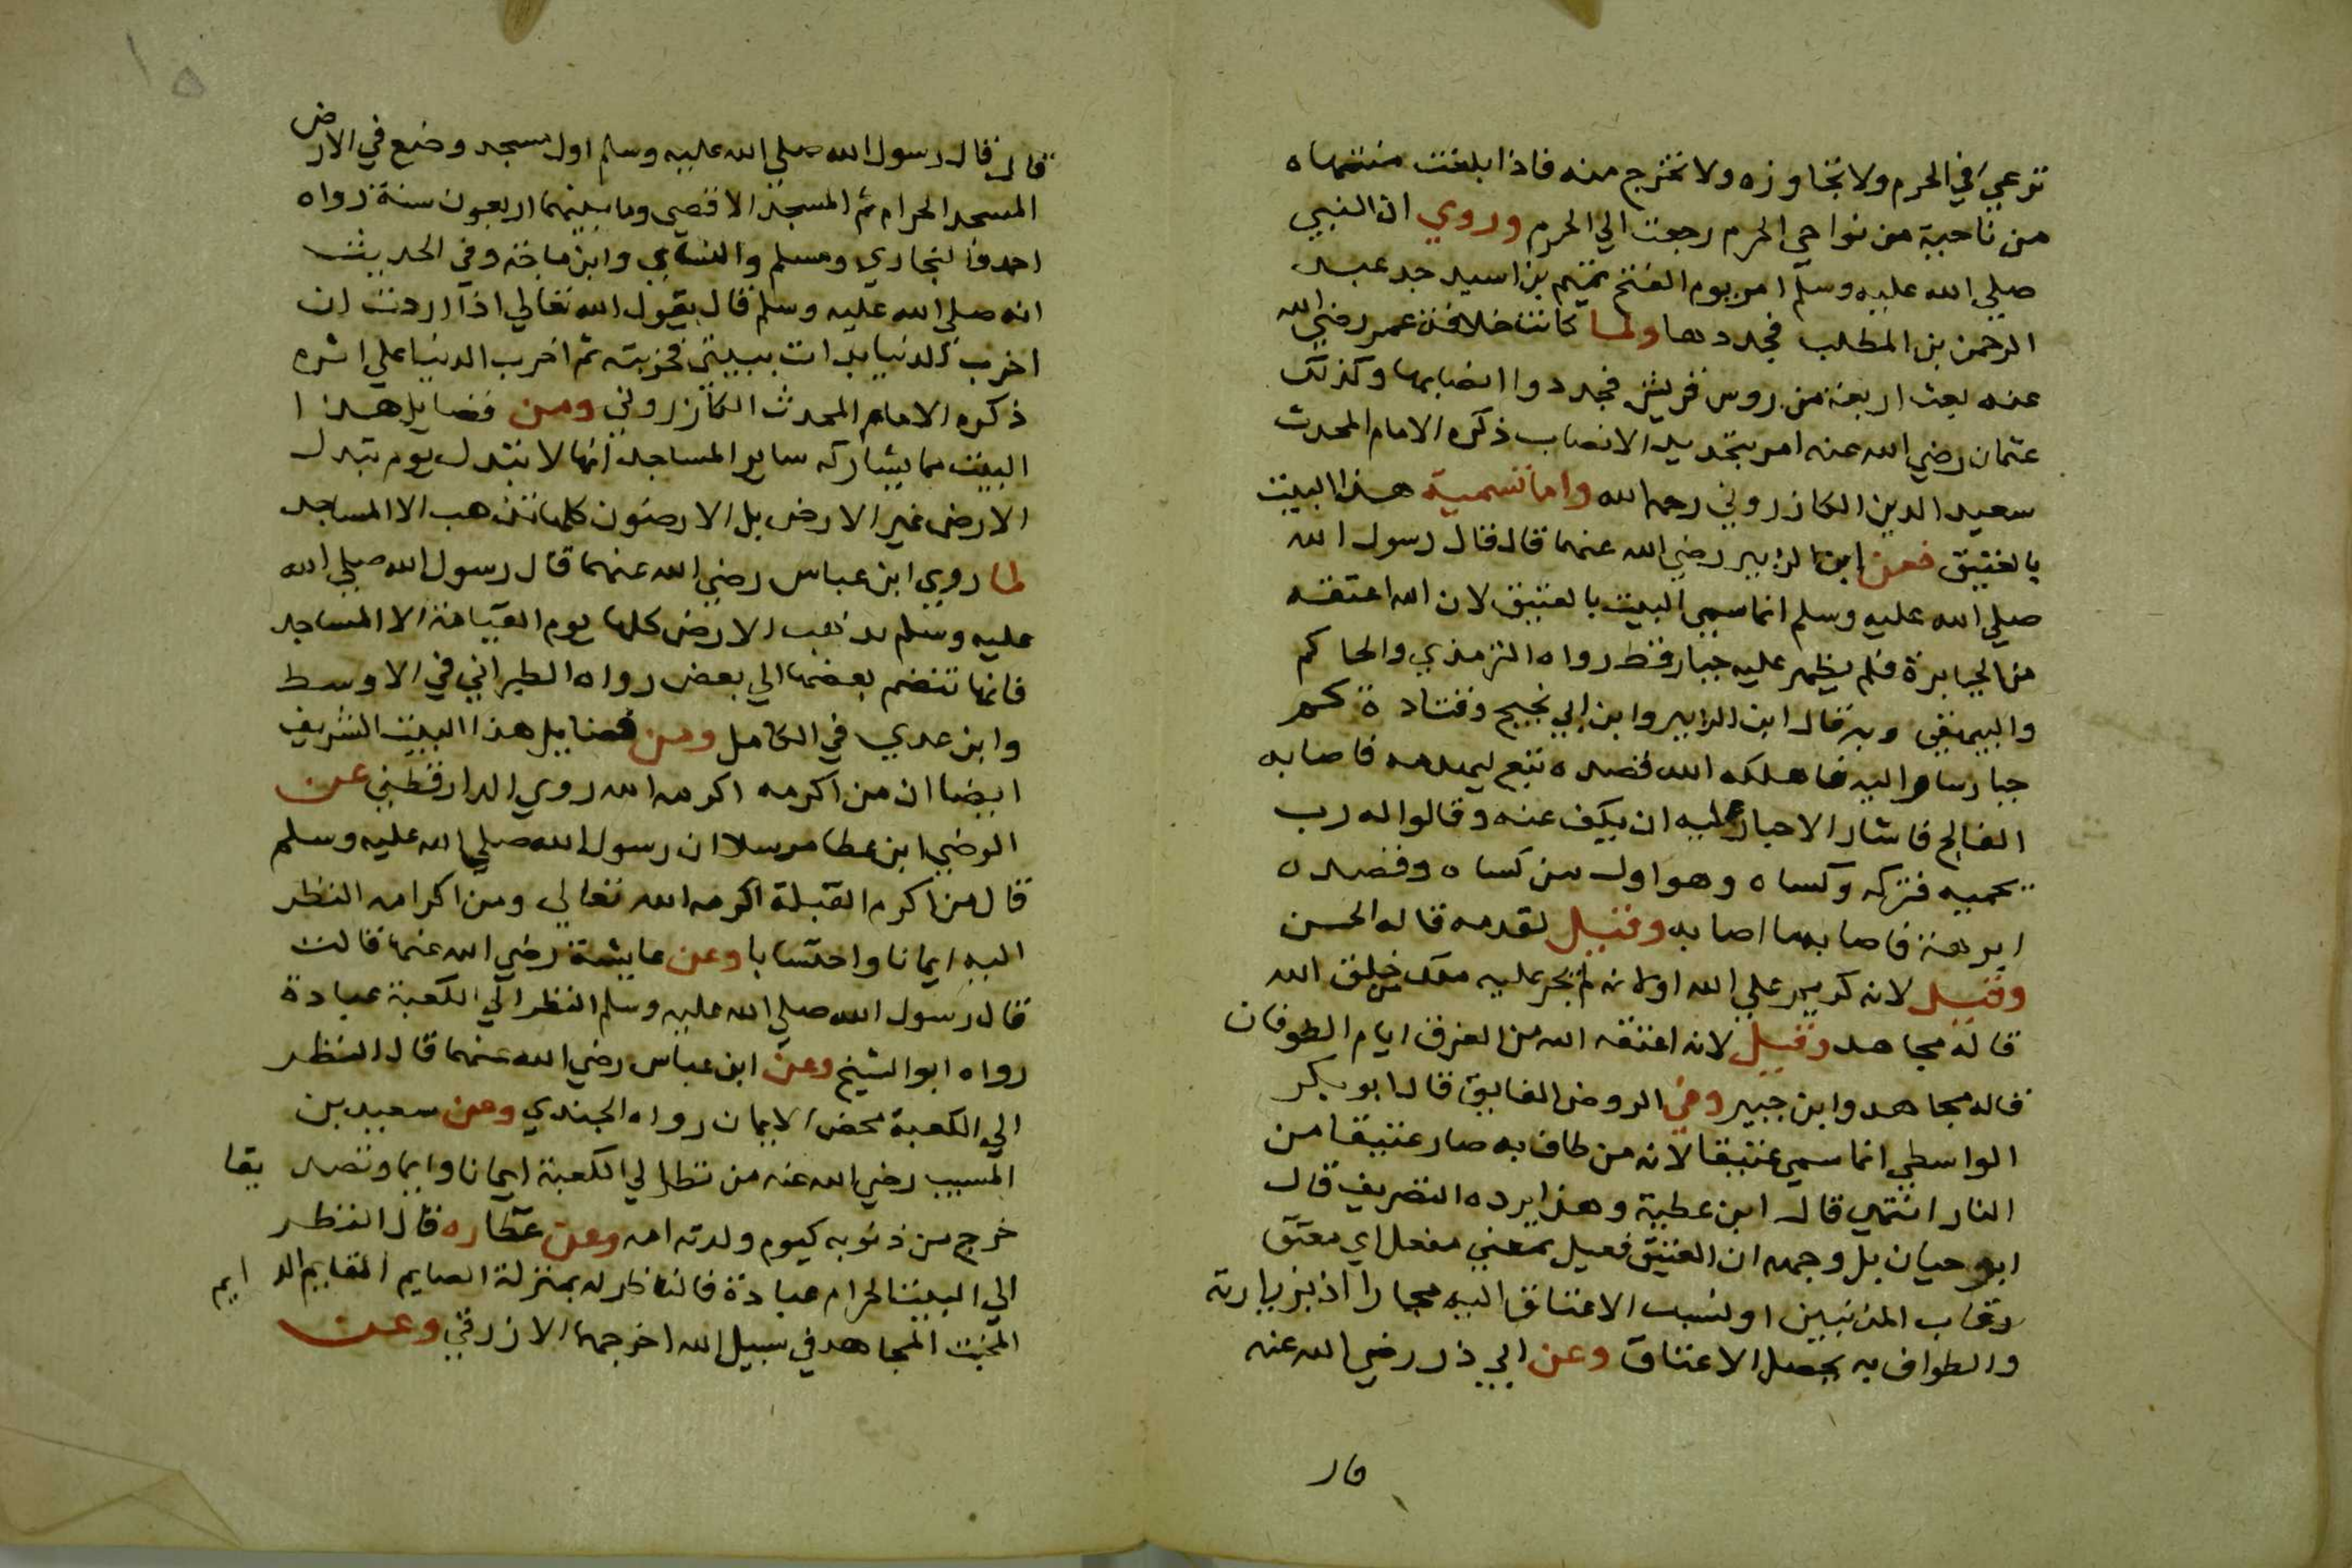 ترعي في الحرم ولا تتجاوزه ولا تخرج منه فاذا بلغت منتهاه
من ناحية من نواحي الحرم رجعت الي الحرم وروي ان النبي
صلي الله عليه وسلم امر يوم الفتح تميم بن اسيد جد عبد
الرحمن بن المطلب فجددها ولما كانت خلافة عمر رضي الله
عنه بعث اربعة من روس قريش فجددوا انصابها وكذلك
عثمان رضي الله عنه امر بتجديد الانصاب ذكره الامام المحدث
سعيد الدين الكازروني رحمه الله واما تسمية هذا البيت
بالعتيق فعن ابن الزبير رضي الله عنهما قال قال رسول الله
صلي الله عليه وسلم انما سمي البيت بالعتيق لان الله اعتقه
من الجبابرة فلم يظهر عليه جبار قط رواه الترمذي والحاكم
والبيهقي وبه قال ابن الزبير وابن ابي نجيح وقتادة كم
جبار سار اليه فاهلكه الله قصده تبع ليهدمه فاصابه
الفالج فاشار الاحبار عليه ان يكف عنه وقالوا له رب
يحميه فتركه وكساه وهو اول من كساه وقصده
ابرهة فاصابه ما اصابه وقيل لقدمه قاله الحسن
وقيل لانه كريم علي الله او لانه لم يجر عليه ملك خلق الله
قاله مجاهد وقيل لانه اعتقه الله من الغرق ايام الطوفان
قاله مجاهد وابن جبير وفي الروض الفايق قال ابو بكر
الواسطي انما سمي عتيقا لانه من طاف به صار عتيقا من
النار انتهي قال ابن عطية وهذا يرده التصريف قال
ابو حيان بل وجهه ان العتيق فعيل بمعني مفعل اي معتق
رقاب المذنبين او لنسبت الاعتاق اليه مجازا اذ بزيارته
والطواف به يحصل الاعتاق وعن ابي ذر رضي الله عنه
فا ر
١٥
قال قال رسول الله صلي الله عليه وسلم اول مسجد وضع في الارض
المسجد الحرام ثم المسجد الاقصي وما بينهما اربعون سنة رواه
احمد والبخاري ومسلم والنساي وابن ماجة وفي الحديث
انه صلي الله عليه وسلم قال يقول الله تعالي اذا اردت ان
اخرب الدنيا بدات ببيتي فخربته ثم اخرب الدنيا علي اثره
ذكره الامام المحدث الكازروني ومن فضايل هذا
البيت مما يشاركه ساير المساجد انها لا تبدل يوم تبدل
الارض غير الارض بل الارضون كلها تذهب الا المساجد
لما روي ابن عباس رضي الله عنهما قال رسول الله صلي الله
عليه وسلم تذهب الارض كلها يوم القيامة الا المساجد
فانها تنضم بعضها الي بعض رواه الطبراني في الاوسط
وابن عدي في الكامل ومن فضايل هذا البيت الشريف
ايضا ان من اكرمه اكرمه الله روي الدارقطني عن
الوضي ابن عطا مرسلا ان رسول الله صلي الله عليه وسلم
قال من اكرم القبلة اكرمه الله تعالي ومن اكرامه النظر
اليه ايمانا واحتسابا وعن عايشة رضي الله عنها قالت
قال رسول الله صلي الله عليه وسلم النظر الي الكعبة عبادة
رواه ابو الشيخ وعن ابن عباس رضي الله عنهما قال النظر
الي الكعبة محض الايمان رواه الجندي وعن سعيد بن
المسيب رضي الله عنه من نظر الي الكعبة ايمانا وتصديقا
خرج من ذنوبه كيوم ولدته امه وعن عطا قال النظر
الي البيت الحرام عبادة فالناظر له بمنزلة الصايم القايم الدايم
المخبت المجاهد في سبيل الله اخرجها الازرقي وعن